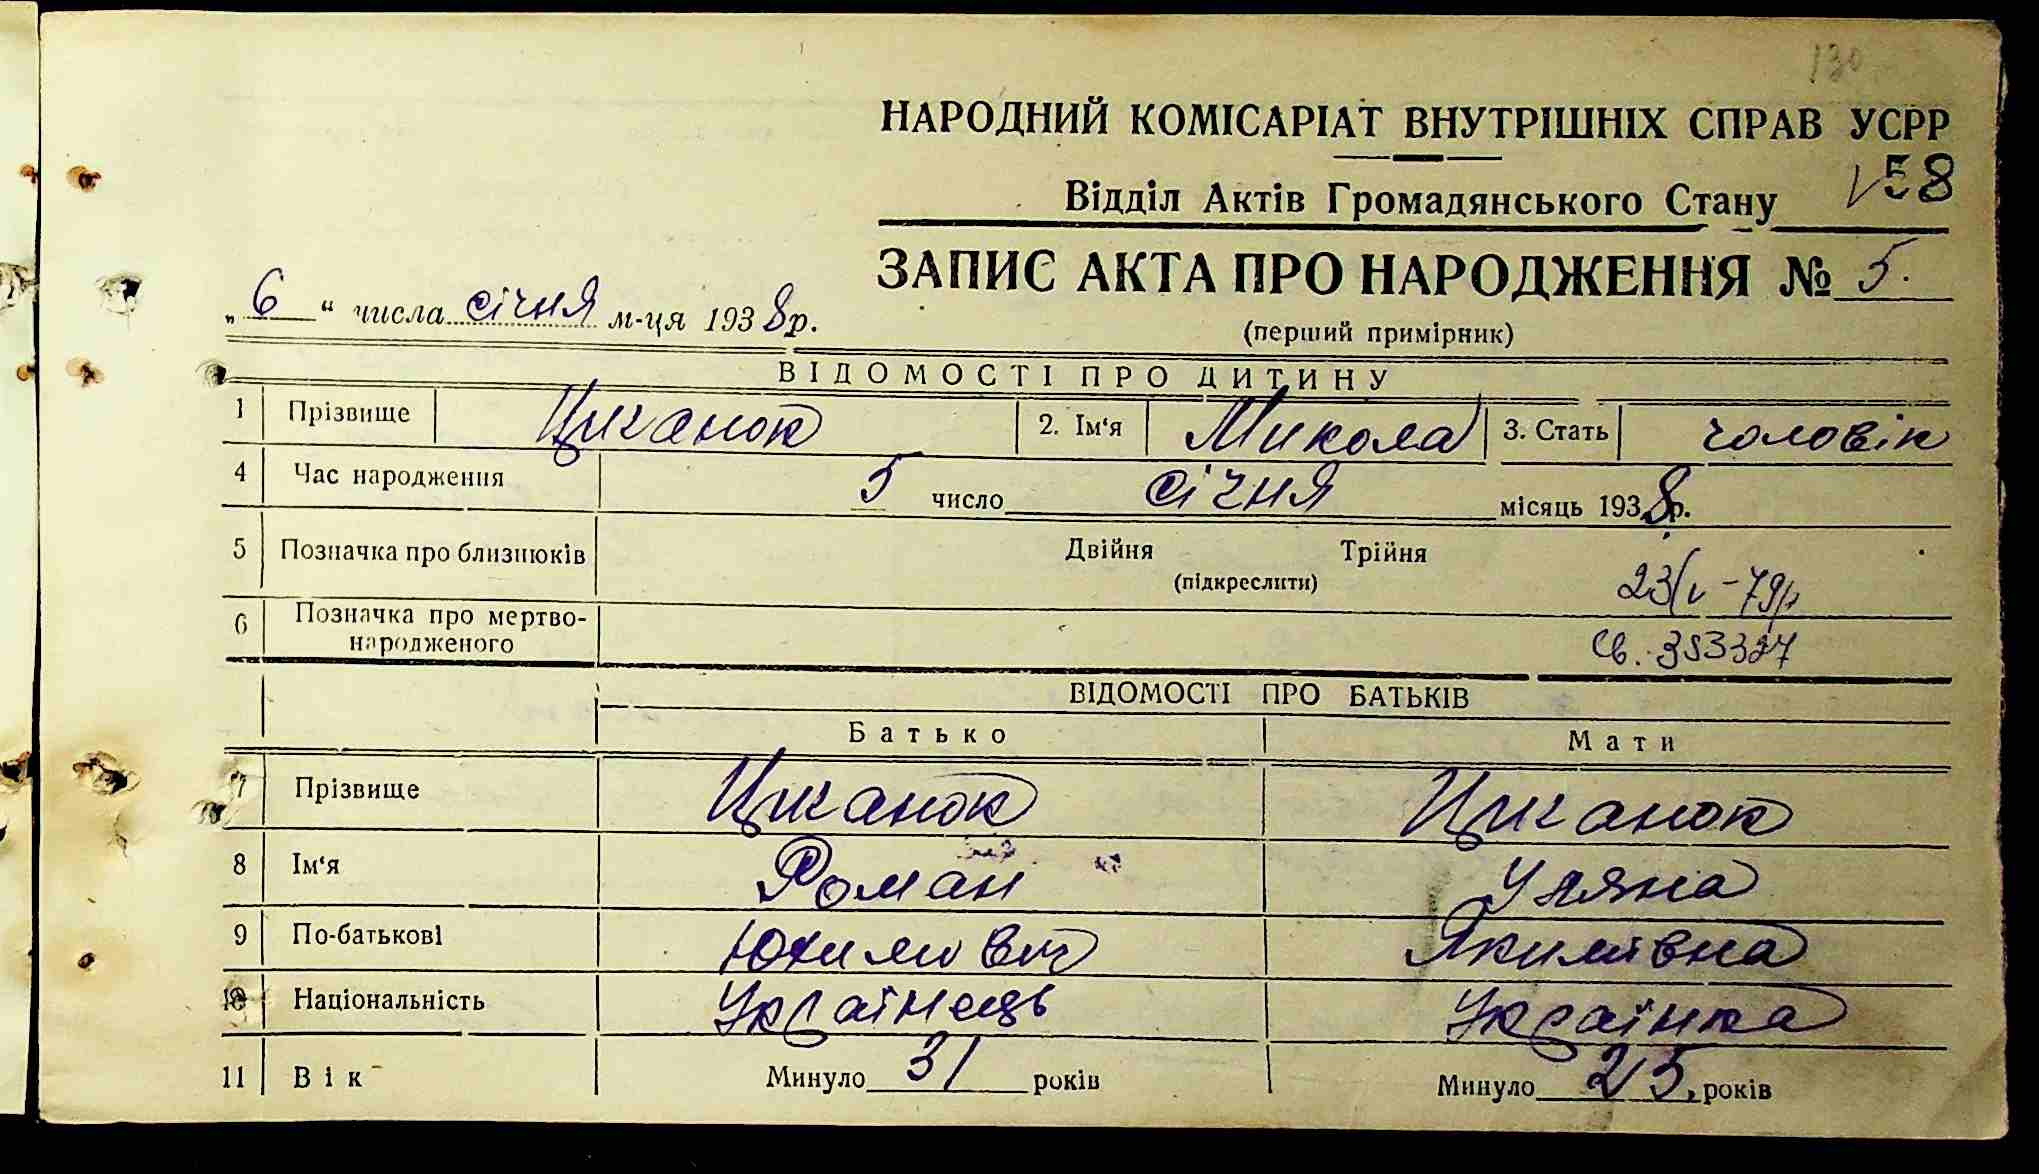 130
НАРОДНИЙ КОМІСАРІАТ ВНУТРІШНІХ СПРАВ УСРР
Відділ Актів Громадянського Стану
58
ЗАПИС АКТА ПРО НАРОДЖЕННЯ № 5.
„6“ числа січня м-ця 1938р.
(перший примірник)
ВІДОМОСТІ ПРО ДИТИНУ
1 Прізвище Циганок 2. Ім‘я Микола 3. Стать чоловік
4 Час народження 5 число січня місяць 1938р.
5 Позначка про близнюків Двійня Трійня
(підкреслити)
23/V-79р
6 Позначка про мертво-
народженого
Св. 353327
ВІДОМОСТІ ПРО БАТЬКІВ
Батько Мати
7 Прізвище Циганок Циганок
8 Ім‘я Роман Уляна
9 По-батькові Юхимович Якимівна
10 Національність Українець Українка
11 Вік Минуло 31 років Минуло 25 років